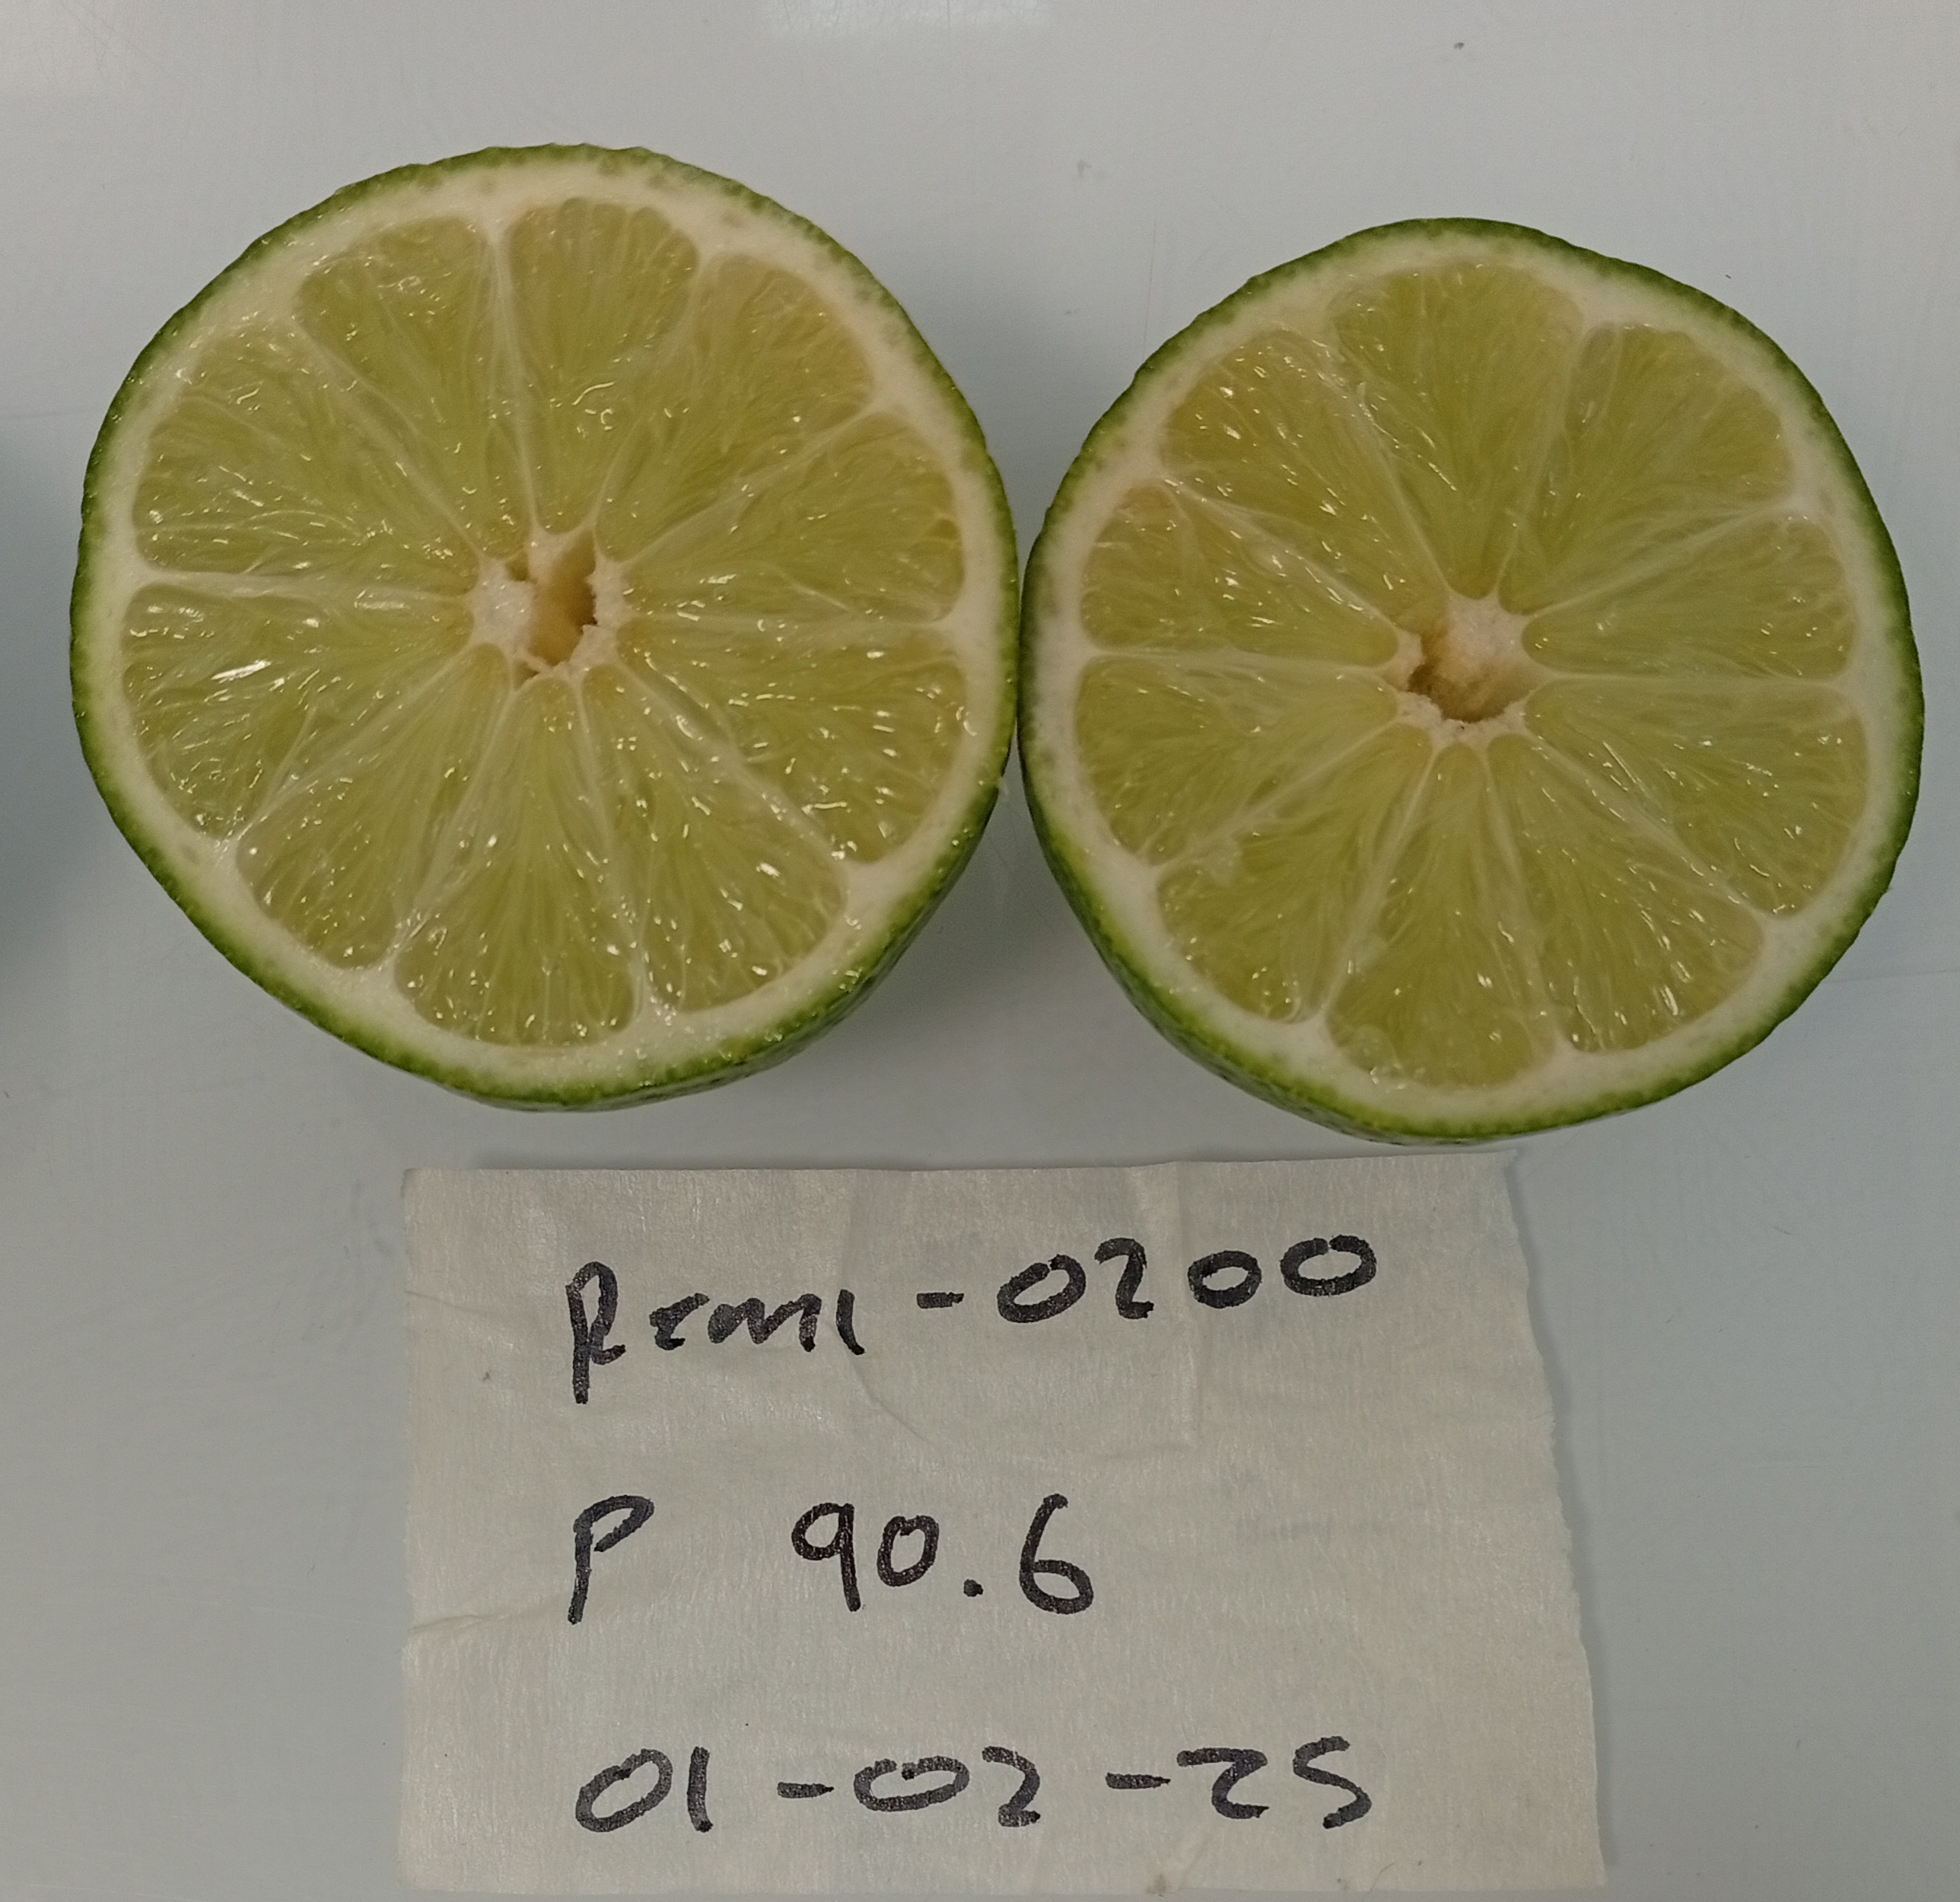 Remi-0200
P 90.6
01-02-25